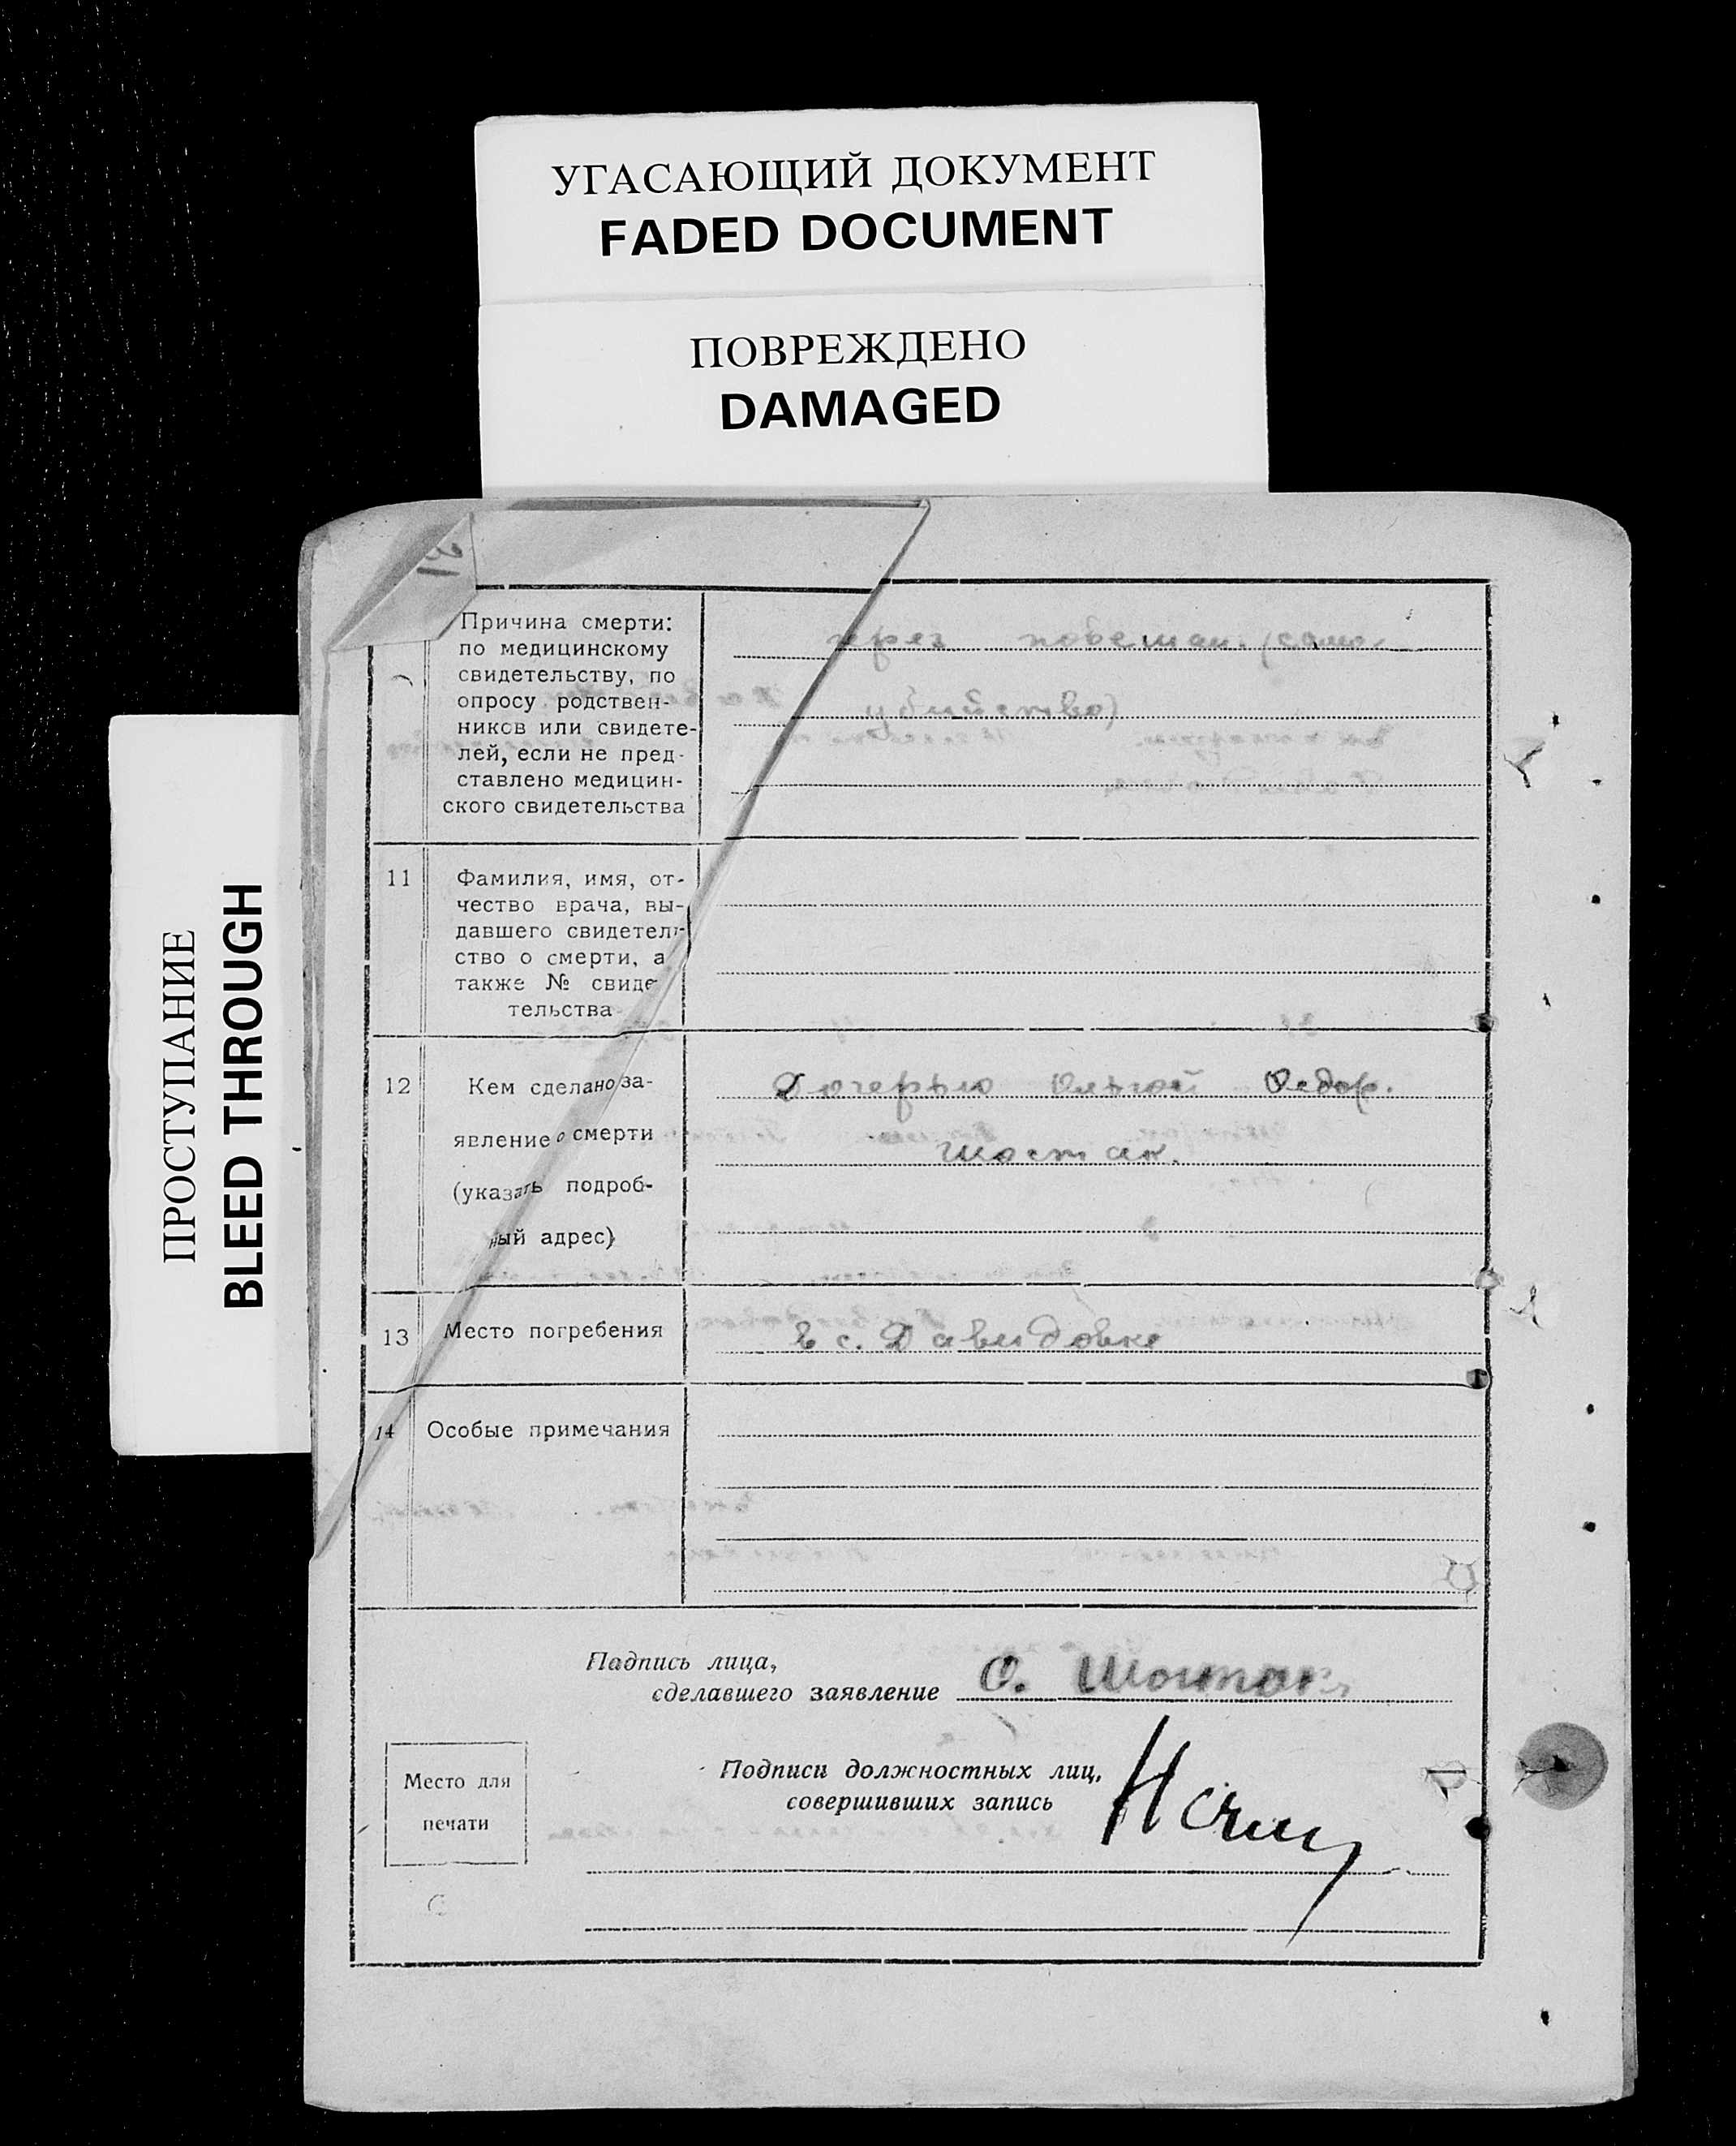 УГАСАЮЩИЙ ДОКУМЕНТ
FADED DOCUMENT
ПОВРЕЖДЕНО
DAMAGED
ПРОСТУПАНИЕ
BLEED THROUGH
Причина смерти:
по медицинскому
свидетельству, по
опросу родствен-
ников или свидете-
лей, если не пред-
ставлено медицин-
ского свидетельства
через повешан. (само-
убийство)
11
Фамилия, имя, от-
чество врача, вы-
давшего свидетель-
ство о смерти, а
также № свиде
тельства
12
Кем сделано за-
явление о смерти
(указать подроб-
ный адрес)
Дочерью Ольгой Федор.
Шостак.
13
Место погребения
в с. Давидовке
14
Особые примечания
Подпись лица,
сделавшего заявление О. Шостак
Место для
печати
Подписи должностных лиц,
совершивших запись